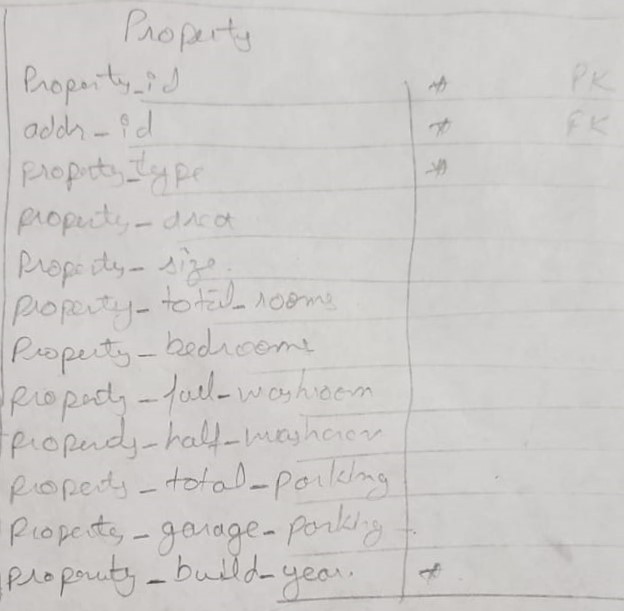 Property
Property_id * PK
addr_id * FK
property_type *
property_area
Property_size.
property_total_rooms
Property_bedrooms
property_full_washroom
property_half_washroom
property_total_parking
Property_garage_parking
property_build_year. *